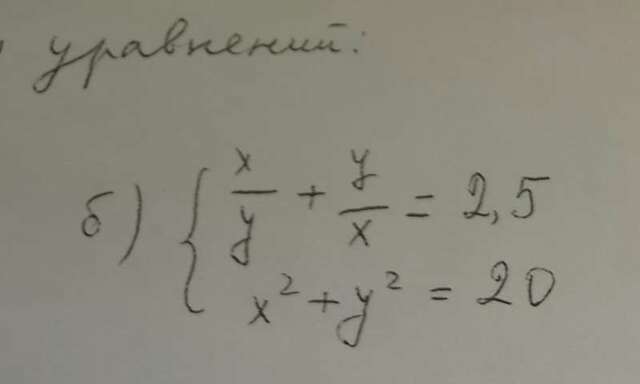 уравнений:
б) { x/y + y/x = 2,5
x² + y² = 20